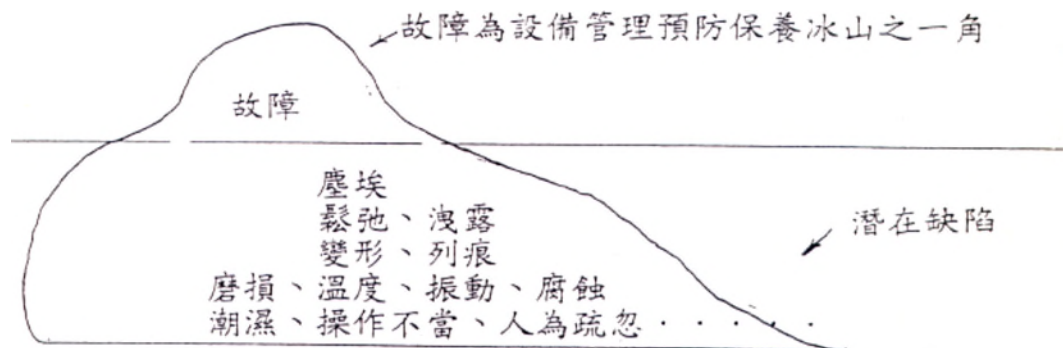 故障為設備管理預防保養冰山之一角
故障
塵埃
鬆弛、洩露
變形、列痕
潛在缺陷
磨損、溫度、振動、腐蝕
潮濕、操作不當、人為疏忽．．．．．